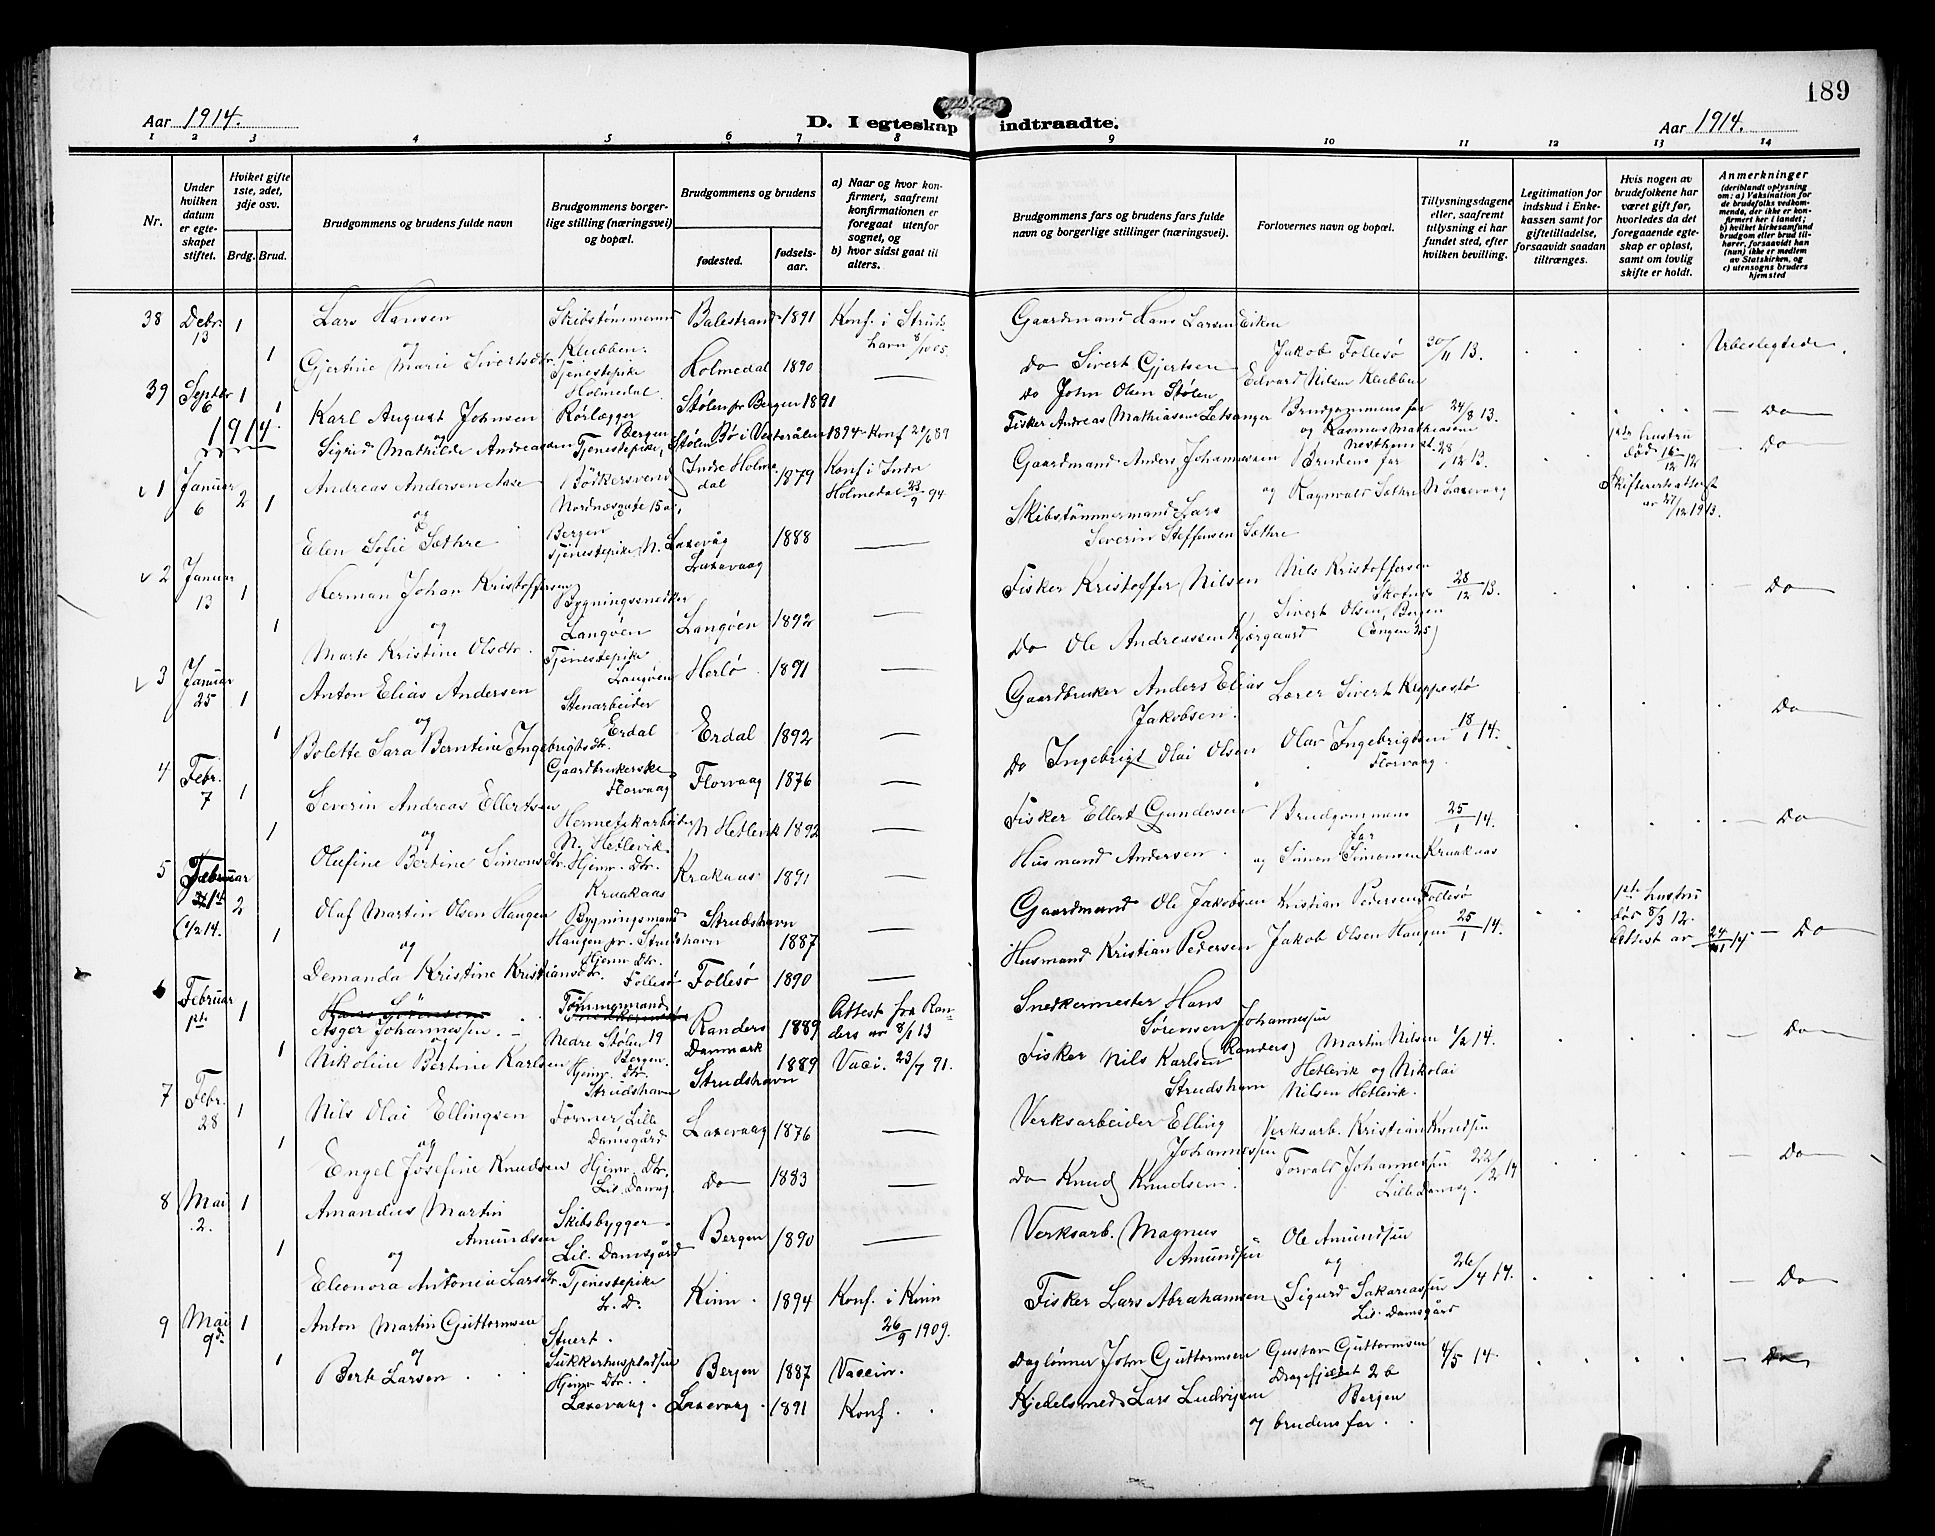 189
Aar 1914.
D. I egteskap indtraadte.
Aar 1914.
1 2 3 4 5 6 7 8 9 10 11 12 13 14
Nr.
Under hvilken datum er egteskapet stiftet.
Hviket gifte 1ste, 2det, 3dje osv.
Brdg. Brud.
Brudgommens og brudens fulde navn
Brudgommens borgerlige stilling (næringsvei) og bopæl.
Brudgommens og brudens
fødested.
fødselsaar.
a) Naar og hvor konfirmert, saafremt konfirmationen er foregaat utenfor sognet, og
b) hvor sidst gaat til alters.
Brudgommens fars og brudens fars fulde navn og borgerlige stillinger (næringsvei).
Forlovernes navn og bopæl.
Tillysningsdagene eller, saafremt tillysning ei har fundet sted, efter hvilken bevilling.
Legitimation for indskud i Enkekassen samt for giftetilladelse, forsaavidt saadan tiltrænges.
Hvis nogen av brudefolkene har været gift før, hvorledes da det foregaaende egteskap er opløst, samt om lovlig skifte er holdt.
Anmerkninger (deriblandt oplysning om: a) Vaksination for de brudefolks vedkommende, der ikke er konfirmert her i landet; b) hvilket kirkesamfund brudgom eller brud tilhører, forsaavidt han (hun) ikke er medlem av Statskirken, og c) utensogns bruders hjemsted
38 Debr. 13 1 Lars Hansen Skibstømmerm Balestrand 1891 Konf. i Struds-havn 8/10 05. Gaardmand Hans Larsen Eiken
og Klubben.
1 Gjertine Marie Sivertsdtr. Tjenestepike Holmedal. Holmedal 1890 — Do Sivert Gjertsen Jakob Follesø 30/11 13. Ubeslegtede.
Edvard Nilsen Klubben
39 Septbr 6 1 1 Karl August Johnsen Rørlægger Bergen Stølen pr Bergen 1891 Do John Olsen Stølen Brudgommens far 24/8 13. — Do
og
Sigrid Mathilde Andreassen Tjenestepike, Stølen Bø i Vesterålen 1894 Fisker Andreas Mathiasen og Rasmus Mathiasen
1914.
1 Januar 6 2 1 Andreas Andersen Aase Bødkersvend Nordnæsgate 15 a, Bergen Indre Holmedal 1879 Konf i Indre Holmedal 23/9 94 Gaardmand Anders Johannessen Brudens far 28/12 13. 1ste hustru død 16/12 12 — Do
og Skifteretsattest av 27/12 1913.
Elen Sofie Sæthre Tjenestepike N. Laxevåg Laxevaag 1888 — Skibstømmermand Lars Severin Steffensen Sæthre og Ragnvald Sæthre N Laxevaag
2 Januar 13 1 Herman Johan Kristoffersen Bygningssnedker Langøen Langøen 1892 — Fisker Kristoffer Nilsen Nils Kristoffersen 28/12 13. — Do
og
1 Marte Kristine Olsdtr. Tjenestepike Langøen Herlø 1891 — Do Ole Andreassen Kjærgaard Sivert Olsen, Bergen
3 Januar 25 1 Anton Elias Andersen Stenarbeider Erdal Erdal 1892 — Gaardbruker Anders Elias Jakobsen. Lærer Sivert Kleppestø 18/1 14. Do
og
1 Bolette Sara Berntine Ingebrigtsdtr. Gaardbrukerske Florvaag Florvaag 1876 — Do Ingebrigt Olai Olsen Olav Ingebrigtsen Florvaag
4 Febr. 7 1 Severin Andreas Ellertsen Hermetikarbeider N. Hetlevik N Hetlevik 1892 — Fisker Ellert Gundersen Brudgommens far 25/1 14. — Do
og
1 Olufine Bertine Simonsdtr. Hjemv. Dtr. Kraakaas Krakaas 1891 — Husmand Andersen. og Simon Simonsen Kraakaas
5 Februar 14 (4/2 14. 2 Oluf Martin Olsen Haugen Bygningsmand Haugen pr. Strudshavn Strudshavn 1887 — Gaardmand Ole Jakobsen Kristian Pedersen Follesø 25/1 14. 1ste hustru død 8/3 12. Attest av 24/1 14 — Do
og
1 Demanda Kristine Kristiansdtr. Hjemv Dtr. Follesø Follesø 1890 — Husmand Kristian Pedersen Jakob Olsen Haugen
6 Februar 1ste 1 Hans Sörensen Asger Johannessen Tømmermand Nedre Stølen 19 Bergen. Randers Danmark 1889 Attest fra Randers av 8/1 13 Snedkermester Hans Sørensen Johannessen (Randers) Martin Nilsen 1/2 14. — Do
og
1 Nikoline Bertine Karlsen Hjemv. Dtr. Strudshavn Strudshavn 1889 Vacci. 23/7 91. Fisker Nils Karlsen Strudshavn Hetlevik og Nikolai Nilsen Hetlevik.
7 Febr. 28 1 Nils Olai Ellingsen Former, Lille Damsgård Laxevaag 1876 — Verksarbeider Elling Johannessen Verksarb. Kristian Knudsen
og
1 Engel Josefine Knudsen Hjemv. Dtr. Lil. Damsg. Do 1883 — Do Knud Knudsen. Torvald Johannessen Lille Damsg. 22/2 14 — Do
8 Mai 2. 1 Amandus Martin Amundsen Skibsbygger Lil. Damsgård Bergen 1890 — Verksarb. Magnus Amundsen Ole Amundsen
og og
1 Eleonora Antonia Larsdtr. Tjenestepike L. D. Kinn. 1894 Konf. i Kinn 26/9 1909. Fisker Lars Abrahamsen Sigurd Sakariassen Lil. Damsgård 26/4 14. — Do
9 Mai 9de 1 Anton Martin Guttormsen Stuert. Sukkerhuspladsen Bergen 1887 Vaccin. Daglønner John Guttormsen Gustav Guttormsen Dragefjeldet 2 b Bergen 4/5 14. — Do
og
1 Berte Larsen Hjemv Dtr. Laxevaag. Laxevaag. 1891 Konf. Kjedelsmed Lars Ludvigsen og brudens far.